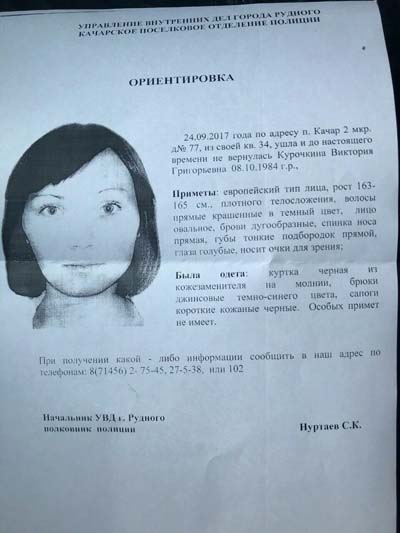 УПРАВЛЕНИЕ ВНУТРЕННИХ ДЕЛ ГОРОДА РУДНОГО
КАЧАРСКОЕ ПОСЕЛКОВОЕ ОТДЕЛЕНИЕ ПОЛИЦИИ
ОРИЕНТИРОВКА
24.09.2017 года по адресу п. Качар 2 мкр.
д№ 77, из своей кв. 34, ушла и до настоящего
времени не вернулась Курочкина Виктория
Григорьевна 08.10.1984 г.р.,
Приметы: европейский тип лица, рост 163-
165 см., плотного телосложения, волосы
прямые крашенные в темный цвет, лицо
овальное, брови дугообразные, спинка носа
прямая, губы тонкие подбородок прямой,
глаза голубые, носит очки для зрения;
Была одета: куртка черная из
кожезаменителя на молнии, брюки
джинсовые темно-синего цвета, сапоги
короткие кожаные черные. Особых примет
не имеет.
При получении какой - либо информации сообщить в наш адрес по
телефонам: 8(71456) 2- 75-45, 27-5-38, или 102
Начальник УВД г. Рудного
полковник полиции
Нуртаев С.К.